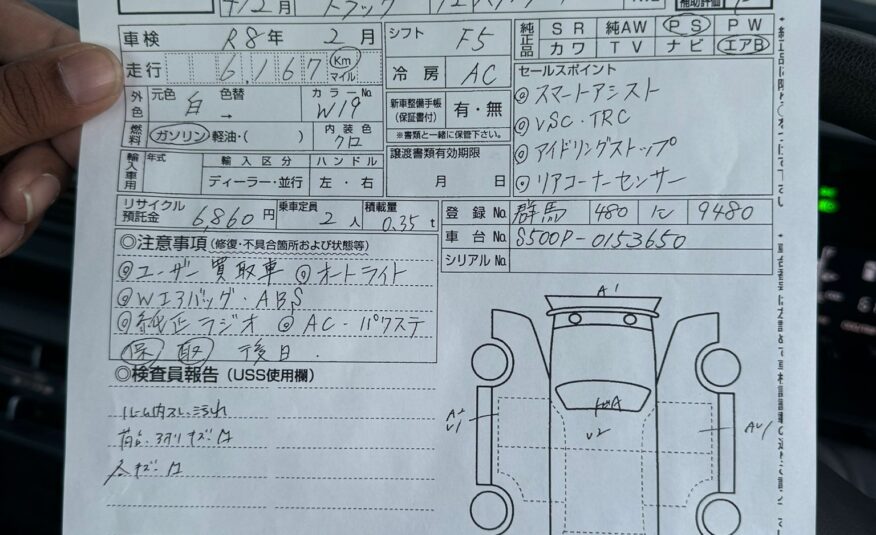 年 2月 トラック
車検 R8年 2月
シフト F5
走行 6,167 Km マイル
冷房 AC
純正品 SR 純AW PS PW
カワ TV ナビ エアB
外色 元色 白 色替 → カラーNo. W19
新車整備手帳 (保証書付) 有・無
※書類と一緒に保管下さい。
燃料 ガソリン 軽油・( ) 内装色 クロ
輸入車用 年式 輸入区分 ハンドル
ディーラー・並行 左・右
譲渡書類有効期限
月 日
セールスポイント
◎スマートアシスト
◎VSC・TRC
◎アイドリングストップ
◎リアコーナーセンサー
リサイクル預託金 6,860円 乗車定員 2人 積載量 0.35t
登録No. 群馬 480 に 9480
車台No. S500P-0153650
シリアルNo.
◎注意事項(修復・不具合箇所および状態等)
◎ユーザー買取車 ◎オートライト
◎Wエアバッグ・ABS
◎純正ラジオ ◎AC・パワステ
保 取 後日.
◎検査員報告(USS使用欄)
ルーム内スレ、汚れ
A1
A
U2
U1